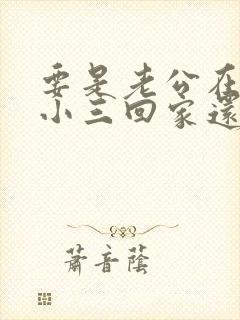 要是老公在
小三回家還
蕭音蔭